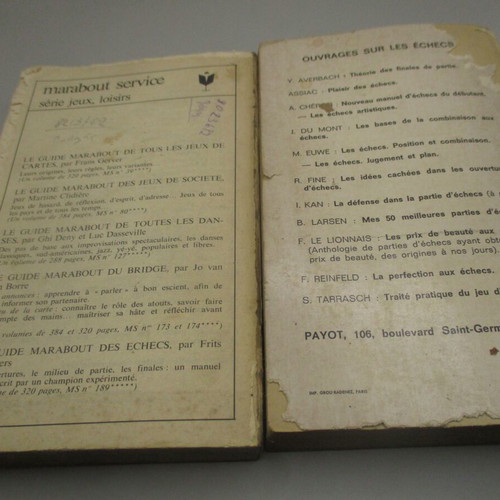 marabout service
série jeux, loisirs
LE GUIDE MARABOUT DE TOUS LES JEUX DE
CARTES, par Frans Gerver
Leurs origines, leurs règles, leurs variantes.
(Un volume de 320 pages, MS n°
LE GUIDE MARABOUT DES JEUX DE SOCIETE,
par Martine Clidière
Jeux de hasard, de réflexion, d'esprit, d'adresse. Jeux de tous
les pays et de tous les temps.
(Un volume de 384 pages, MS n°
LE GUIDE MARABOUT DE TOUTES LES DAN-
SES, par Ghi Deny et Luc Dasseville
Des pas de base aux improvisations spectaculaires, les danses
classiques, sud-américaines, jazz, yé-yé, populaires et folkes.
(Un volume de 288 pages, MS n° 127*****)
GUIDE MARABOUT DU BRIDGE, par Jo van
Borre
annonces : apprendre à « parler » à bon escient, afin de
informer son partenaire.
de la carte : connaître le rôle des atouts, savoir faire
compte des mains... maîtriser sa hâte et réfléchir avant
volumes de 384 et 320 pages, MS n° 173 et 174****)
GUIDE MARABOUT DES ECHECS, par Frits
ers
ertures, le milieu de partie, les finales : un manuel
crit par un champion expérimenté.
me de 320 pages, MS n° 189*****)
OUVRAGES SUR LES ÉCHECS
Y. AVERBACH : Théorie des finales de partie.
ASSIAC : Plaisir des échecs.
A. CHÉRON : Nouveau manuel d'échecs du débutant.
— Les échecs artistiques.
I. DU MONT : Les bases de la combinaison aux
échecs.
M. EUWE : Les échecs. Position et combinaison.
— Les échecs. Jugement et plan.
R. FINE : Les idées cachées dans les ouvertu
d'échecs.
I. KAN : La défense dans la partie d'échecs
B. LARSEN : Mes 50 meilleures parties d'é
F. LE LIONNAIS : Les prix de beauté aux
(Anthologie de parties d'échecs ayant obte
prix de beauté, des origines à nos jours).
F. REINFELD : La perfection aux échecs.
S. TARRASCH : Traité pratique du jeu d
PAYOT, 106, boulevard Saint-Germ